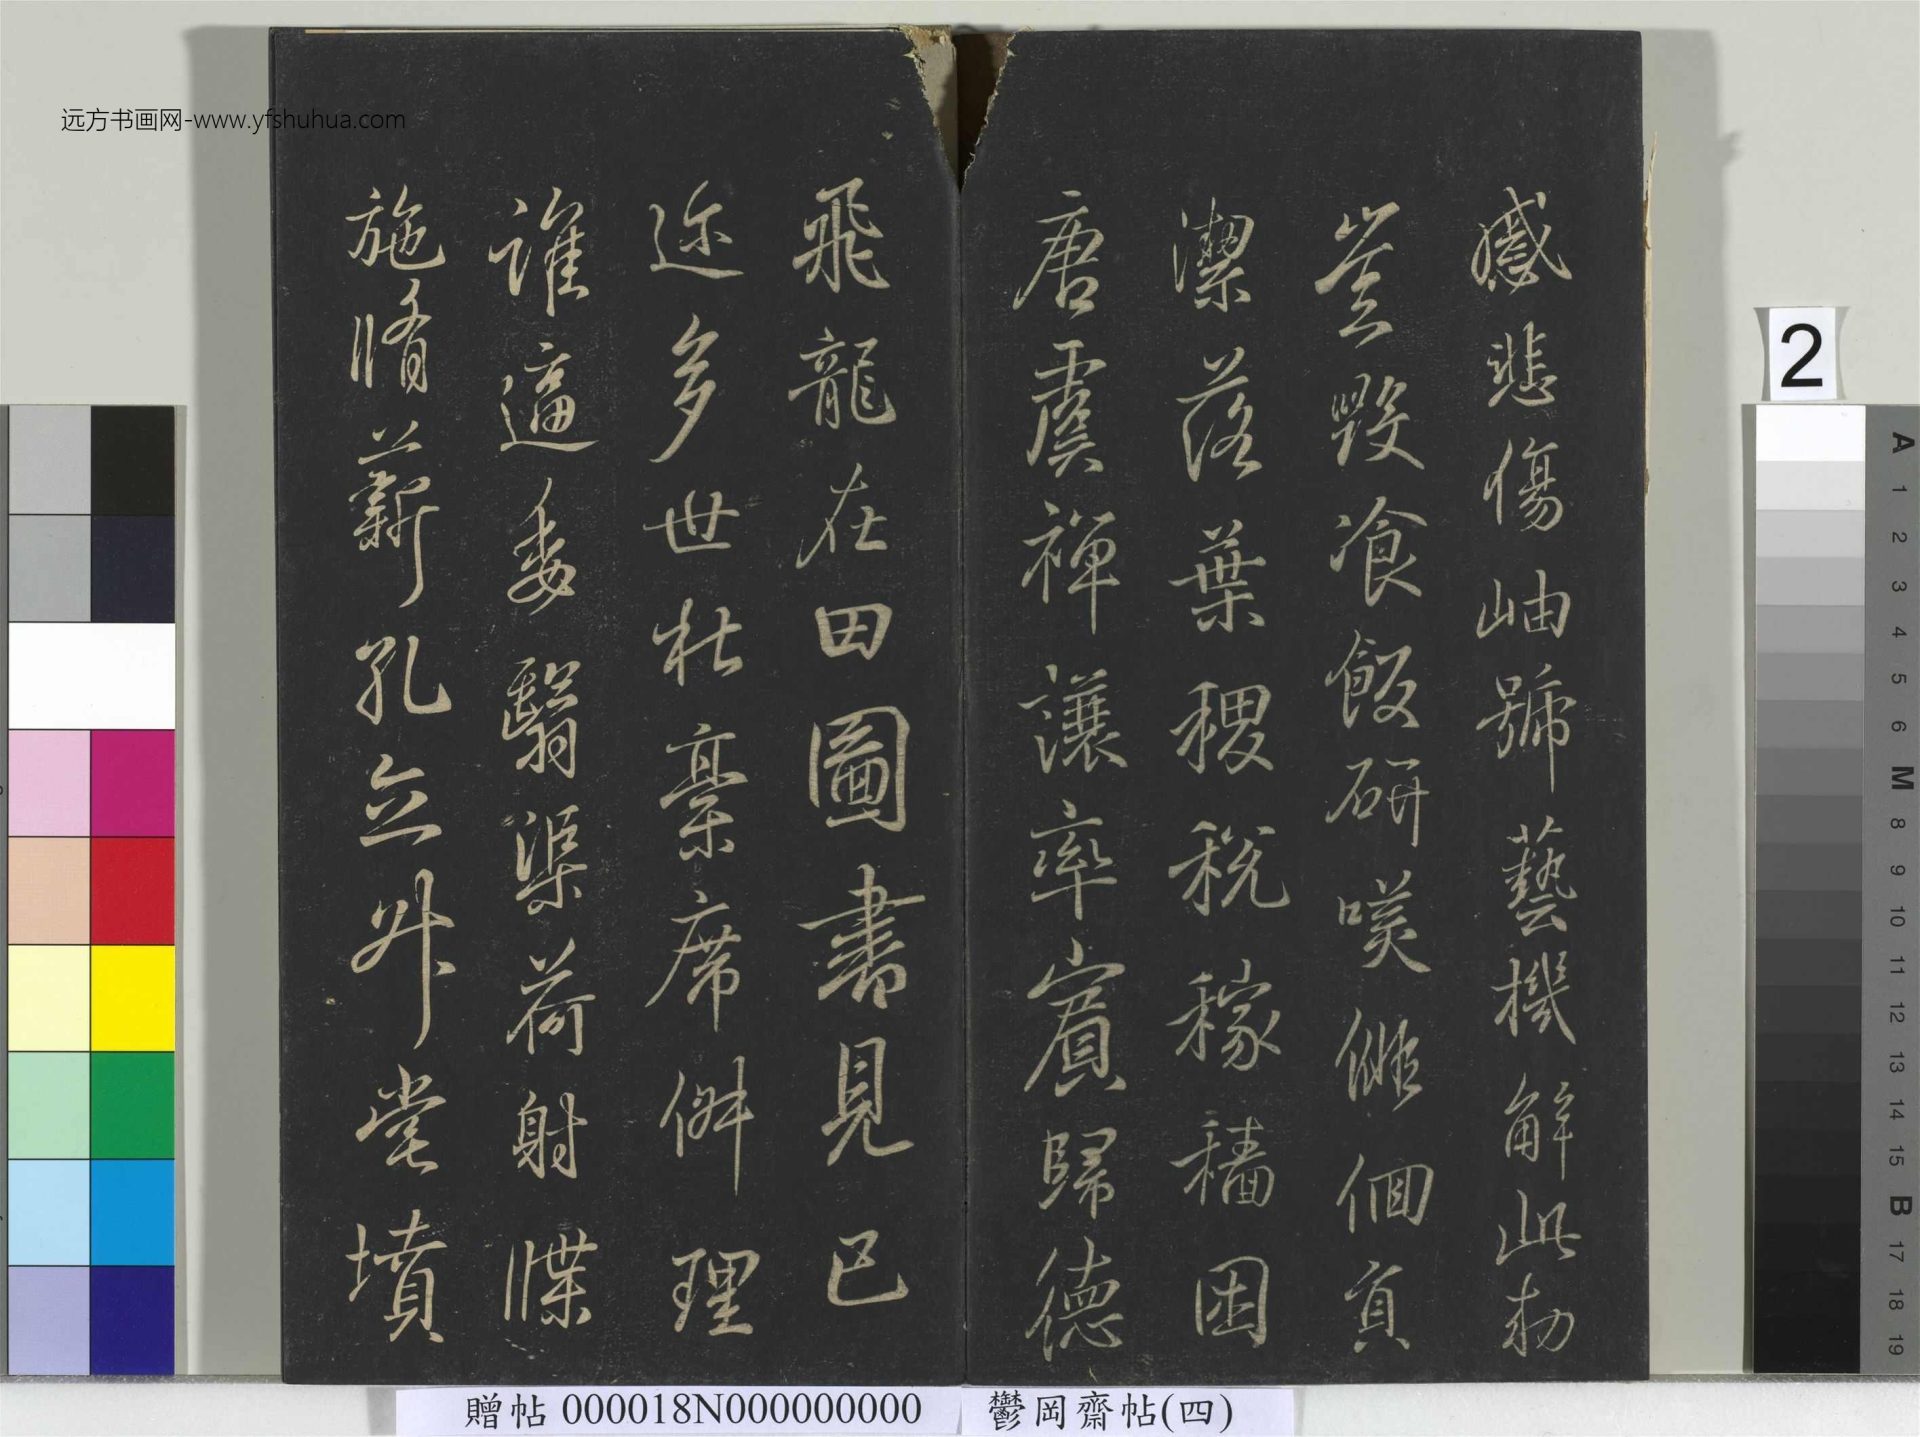 感悲傷岫號藝機解此勅
豈毀飡飯研嘆 個負
潔落葉稷稅稼穡困
唐虞禪讓率賓歸德
飛龍在田圖書見已
迩多世壯稾席 理
誰逼委翳渠荷射牒
施脩薪孔立外堂墳
远方书画网-www.yfshuhua.com
2
A
1
2
3
4
5
6
M
8
9
10
11
12
13
14
15
B
17
18
19
贈帖 000018N000000000 鬱岡齋帖(四)